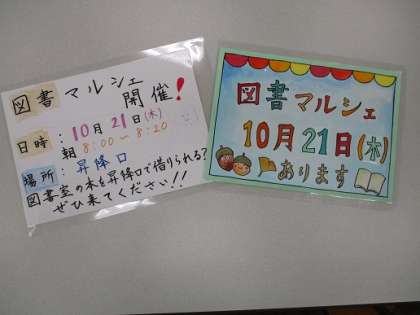 図書マルシェ
開催!
日時:10月21日(木)
朝8:00~8:20
場所:昇降口
図書室の本を昇降口で借りられる?
ぜひ来てください!!
図書マルシェ
10月21日(木)
あります